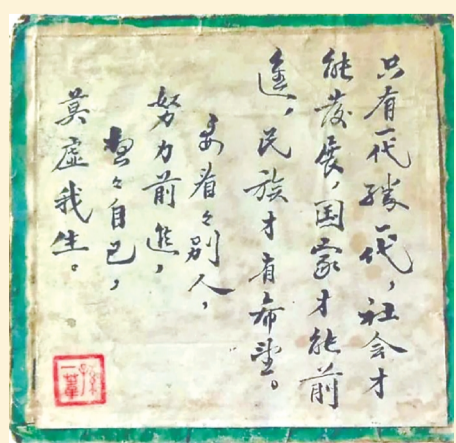 只有一代勝一代，社会才
能发展，国家才能前
進，民族才有希望。
要看々别人，
努力前進，
想々自己，
莫虚我生。